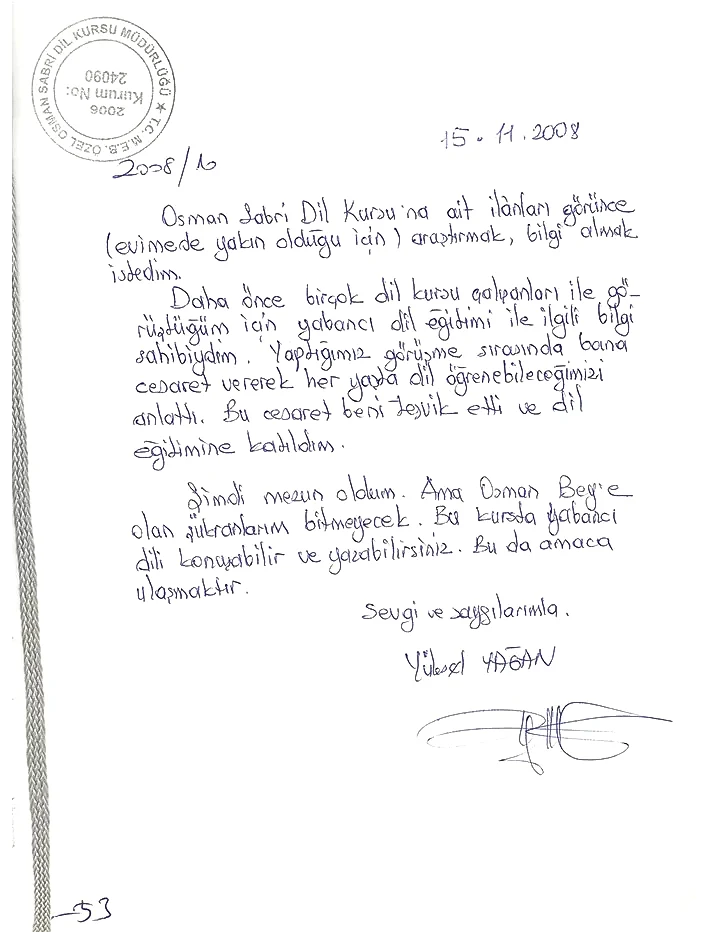 ★ T.C. M.E.B. ÖZEL OSMAN SABRİ DİL KURSU MÜDÜRLÜĞÜ
2006
Kurum No:
24090
15.11.2008
2008/10
Osman Sabri Dil Kursu'na ait ilânları görünce
(evimede yakın olduğu için) araştırmak, bilgi almak
istedim.
Daha önce birçok dil kursu çalışanları ile gö-
rüştüğüm için yabancı dil eğitimi ile ilgili bilgi
sahibiydim. Yaptığımız görüşme sırasında bana
cesaret vererek her yaşta dil öğrenebileceğimizi
anlattı. Bu cesaret beni teşvik etti ve dil
eğitimine katıldım.
Şimdi mezun oldum. Ama Osman Bey'e
olan şükranlarım bitmeyecek. Bu kursta yabancı
dili konuşabilir ve yazabilirsiniz. Bu da amaca
ulaşmaktır.
Sevgi ve saygılarımla.
Yüksel YAĞAN
53